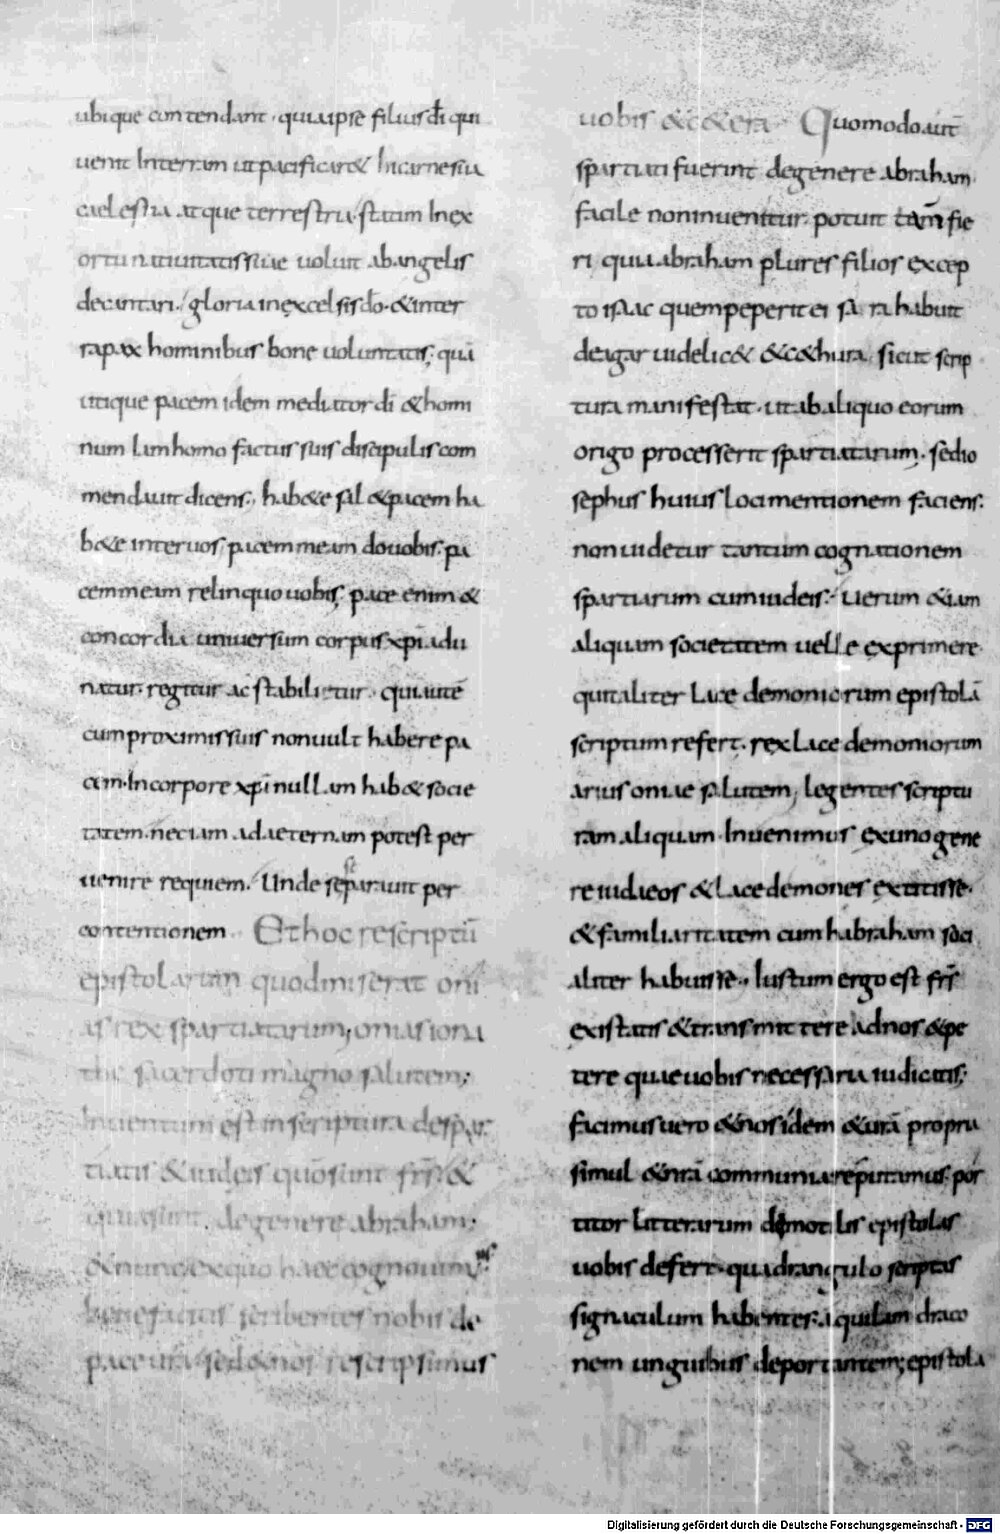 ubique contendant · quia ipse filius di̅ qui
uenit In terram ut pacificar& In carne sua
caelestia atque terrestria · statim In ex
ortu natiuitatis suae uoluit ab angelis
decantari · gloria in excelsis do̅ · & in ter
ra pax hominibus bone uoluntatis; qua̅
utique pacem idem mediator di̅ & homi
num Iam homo factus suis discipulis com
mendauit dicens; hab&e sal & pacem ha
b&e inter uos; pacem meam do uobis · pa
cem meam relinquo uobis; pace enim &
concordia uniuersum corpus xp̅i adu
natur · regitur ac stabilietur · qui aute̅
cum proximis suis non uult habere pa
cem · In corpore xp̅i nullam hab& socie
tatem · nec iam ad aeternam potest per
uenire requiem · Unde separauit per
contentionem · Et hoc rescriptu̅
epistolarum quod miserat oni
as rex spartiatarum; onias iona
thę sacerdoti magno salutem;
Inuentum est in scriptura de spar
tiatis & iudeis quo̅ sunt fr̅s &
quia sunt de genere abraham;
& nunc ex quo haec cognouim'
benefacitis scribentes nobis de
pace ur̅a sed & nos rescripsimus
uobis &c&era · Quomodo aut̅
spartiati fuerint de genere abraham ·
facile non inuenitur · potuit tam̅ fie
ri quia abraham plures filios excep
to isaac quem peperit ei sarra habuit
de agar uidelic& & c&hura · sicut scrip
tura manifestat · ut ab aliquo eorum
origo processerit spartiatarum · sed io
sephus huius loci mentionem faciens ·
non uidetur tantum cognationem
spartiarum cum iudeis · uerum &iam
aliquam societatem uelle exprimere ·
qui taliter Lacedemoniorum epistola̅
scriptum refert · rex Lacedemoniorum
arius oniae salutem; legentes scriptu
ram aliquam · Inuenimus ex uno gene
re iudaeos & Lacedemones extitisse ·
& familiaritatem cum habraham soci
aliter habuisse · Iustum ergo est fr̅s
existatis & transmittere ad nos & pe
tere quae uobis necessaria iudicatis;
facimus uero & nos idem & ur̅a propria
simul & nr̅a communia reputamus · por
titor litterarum demoteles epistolas
uobis defert · quadrangulo scriptas
signaculum habentes · aquilam draco
nem unguibus deportantem; epistola
Digitalisierung gefördert durch die Deutsche Forschungsgemeinschaft - DFG